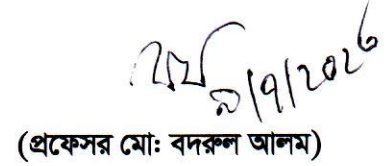 ৯/৭/২০২৬
(প্রফেসর মো: বদরুল আলম)